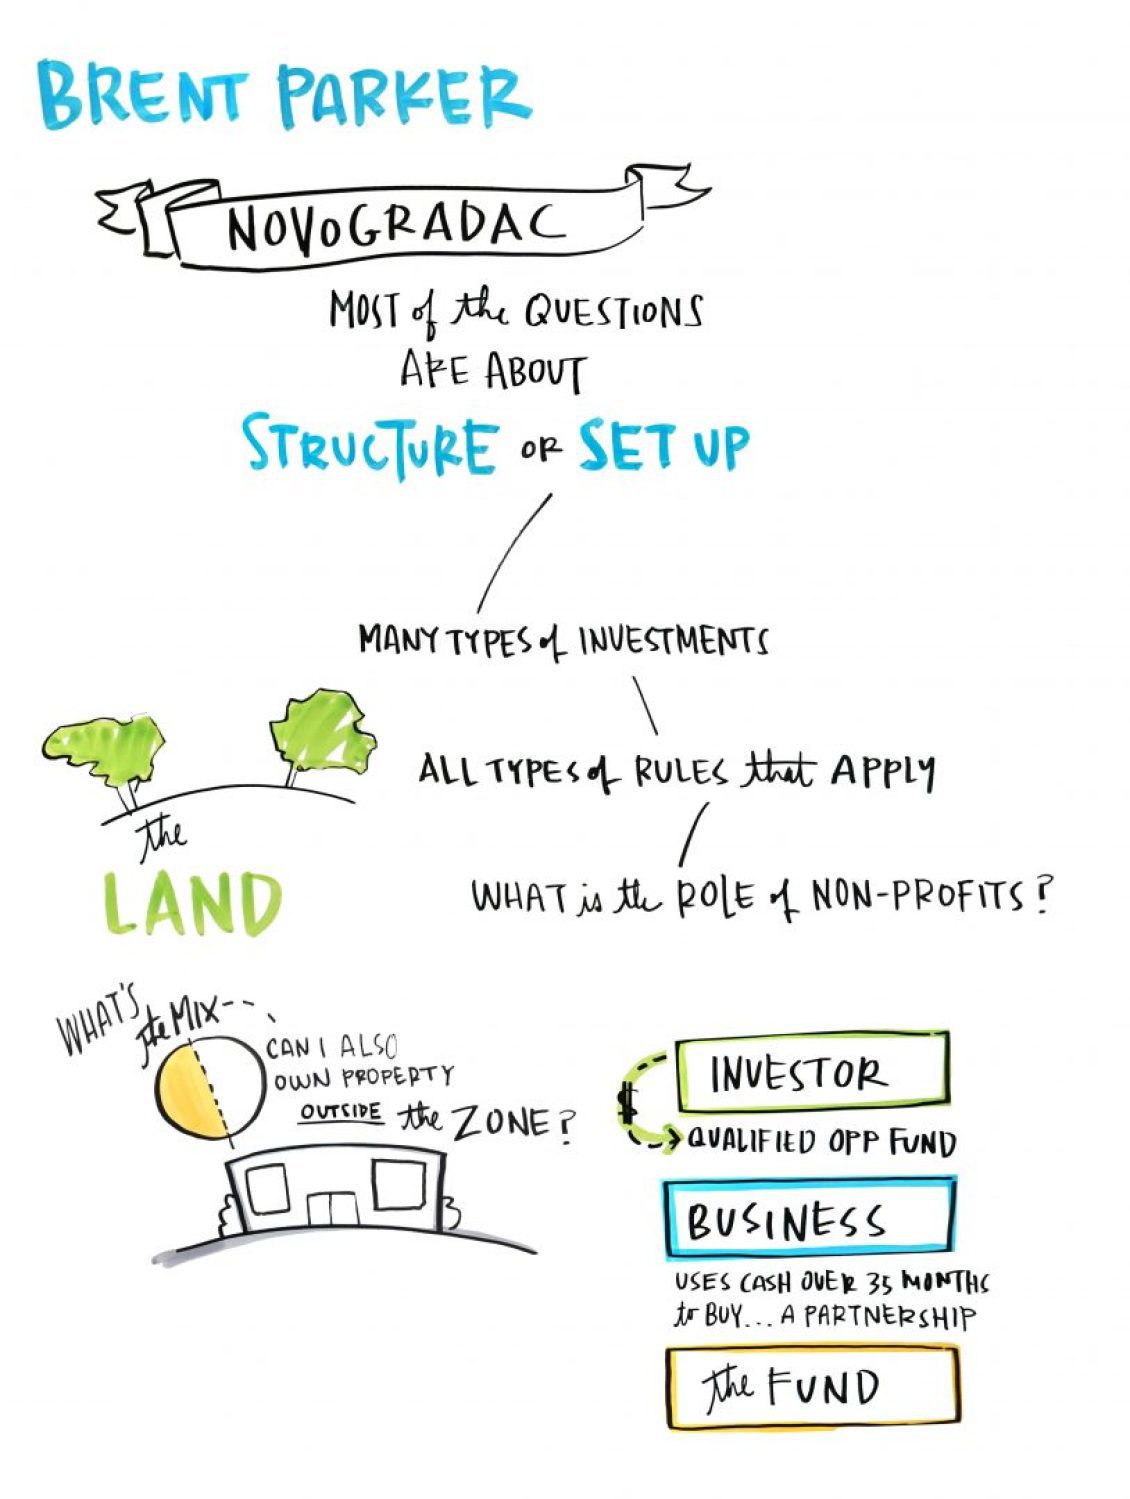 BRENT PARKER
NOVOGRADAC
MOST of the QUESTIONS
ARE ABOUT
STRUCTURE OR SET UP
MANY TYPES of INVESTMENTS
ALL TYPES of RULES that APPLY
WHAT is the ROLE of NON-PROFITS?
the
LAND
WHAT'S
the MIX--
CAN I ALSO
OWN PROPERTY
OUTSIDE the ZONE?
INVESTOR
$
QUALIFIED OPP FUND
BUSINESS
USES CASH OVER 35 MONTHS
to BUY... A PARTNERSHIP
the FUND